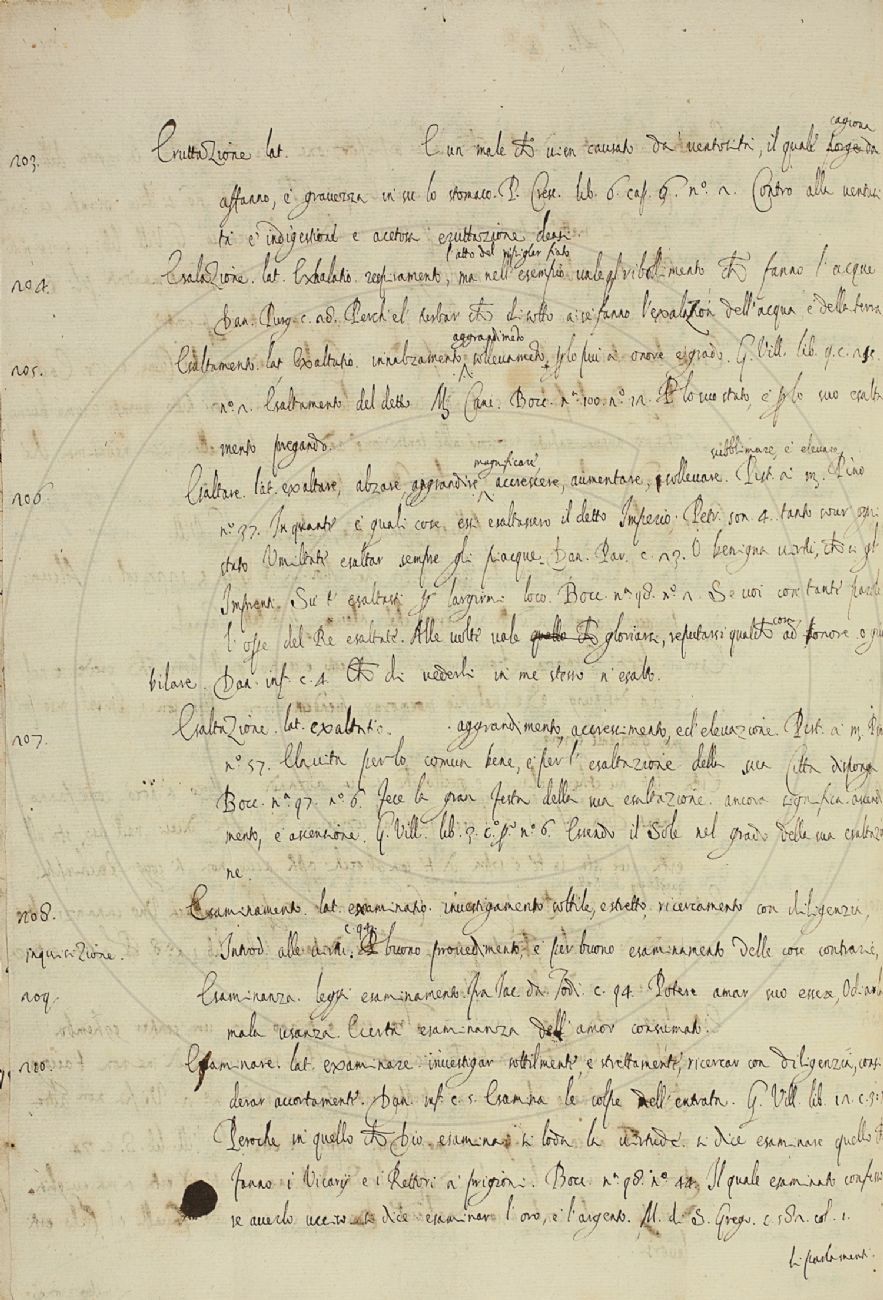 cagiona
203. Eruttazione lat. E un male che vien causato da ventosità, il quale da
affanno, e gravezza in su lo stomaco. P. Cresc. lib. 6. cap. 9. nº. 2. Contro alla ventosi
tà e indigestione e acetosa eruttazione
l'atto del ripigliar fiato
204. Esalazione. lat. Exhalatio. respiramento, ma nell'esempio vale ribollimento che fanno l'acque
Dan. Purg. c. 28. Perchè el turbar che di sotto a se fanno l'exalazion dell'acqua e della terra
aggrandimeto
205. Esaltamento. lat. Exaltatio. innalzamento, sollevameto, p lo piu à onore e grado. G. Vill. lib. 9. c.
nº. 2. Esaltamento del detto M. Cane. Bocc. nª. 100. nº. 12. P lo suo stato, e p lo suo esalta
mento pregando.
magnificare, subblimare, e' elevare
206. Esaltare. lat. exaltare, alzare, aggrandire, accrescere, aumentare, sollevare. Pist. à m. Pino
nº. 37. In quante e quali cose essi esaltassero il detto Imperio. Petr. son. 4. tanto sovr ogni
stato Umiltate esaltar sempre gli piacque. Dan. Par. c. 23. O benigna virtù, che si gl
Imprenti. Su t'esaltasti p largirmi loco. Bocc. nª. 98. nº. 1. Se voi con tante parole
l'opre del Re esaltate. Alle volte vale gloriarsi, reputarsi qualche cosa ad onore, o giu
bilare. Dan. inf. c. 4. Che di vederli in me stesso n'esalto.
207. Esaltazione. lat. exaltatio. aggrandimento, accrescimento, ed elevazione. Pist. à m. Pin
nº. 57. La vita per lo comun bene, e per l'esaltazione della sua Città disponga
Bocc. nª. 97. nº. 6. Fece la gran festa della sua esaltazione. ancora significa ascendi
mento, e ascensione. G. Vill. lib. 3. c. pº. nº. 6. Essendo il Sole nel grado della sua esaltazio
ne.
208. Esaminamento. lat. examinatio. investigamento sottile, e stretto, ricercamento con diligenza,
inquisizione. Introd. alle virtù. P buono provedimento, e per buono esaminamento delle cose contrarie,
209. Esaminanza. leggi esaminamento. fra Jac. da Todi. c. 94. Potere amar suo essere, Odiar la
mala usanza. Certa esaminanza dell'amor consumato.
210. Esaminare. lat. examinare. investigar sottilmente, e strettamente, ricercar con diligenza, consi
derar accortamente. Dan. inf. c. 5. Esamina le colpe nell'entrata. G. Vill. lib. 12. c. 5.
Peroche in quello che Dio esamina si loda la virtude. si dice esaminare quello che
fanno i Vicarij e i Rettori a' prigioni. Bocc. nª. 98. nº. 44. Il quale esaminato confesso
se averlo ucciso. si dice esaminar l'oro, e l'argento. M. di S. Greg. c. 582. col. 1.
li parlamenti.